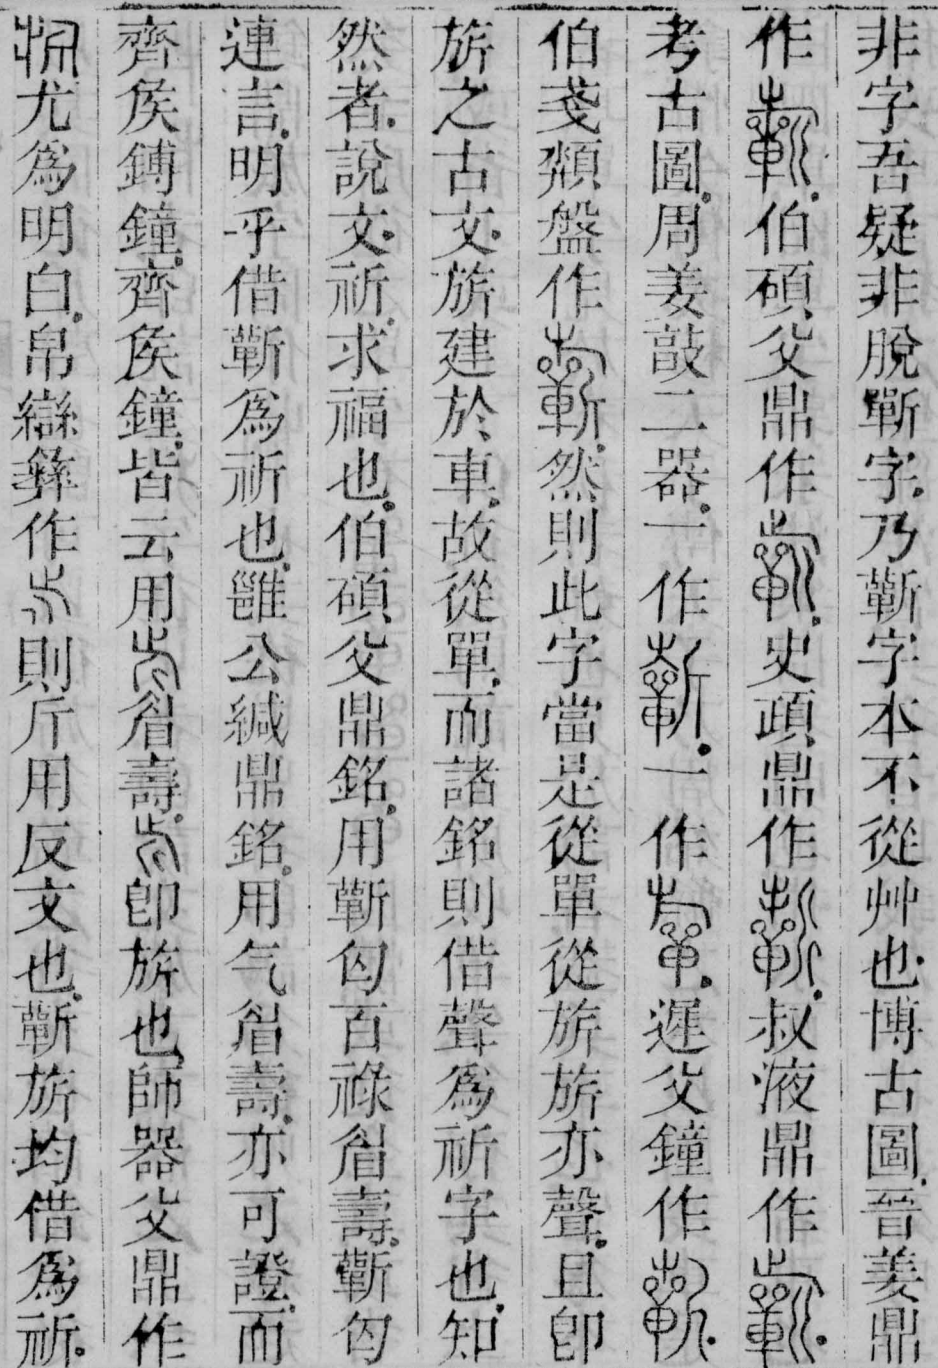 非字吾疑非脫蘄字乃蘄字本不從艸也博古圖晉姜鼎
作伯碩父鼎作史頙鼎作叔液鼎作
考古圖周姜敦二器一作一作遲父鐘作
伯戔頮盤作然則此字當是從單從旂旂亦聲且卽
旂之古文旂建於車故從單而諸銘則借聲爲祈字也知
然者說文祈求福也伯碩父鼎銘用蘄匃百祿眉壽蘄匃
連言明乎借蘄爲祈也雝公緘鼎銘用气眉壽亦可證而
齊侯鎛鐘齊侯鐘皆云用眉壽卽旂也師器父鼎作
尤爲明白帛䜌彝作則斤用反文也蘄旂均借爲祈